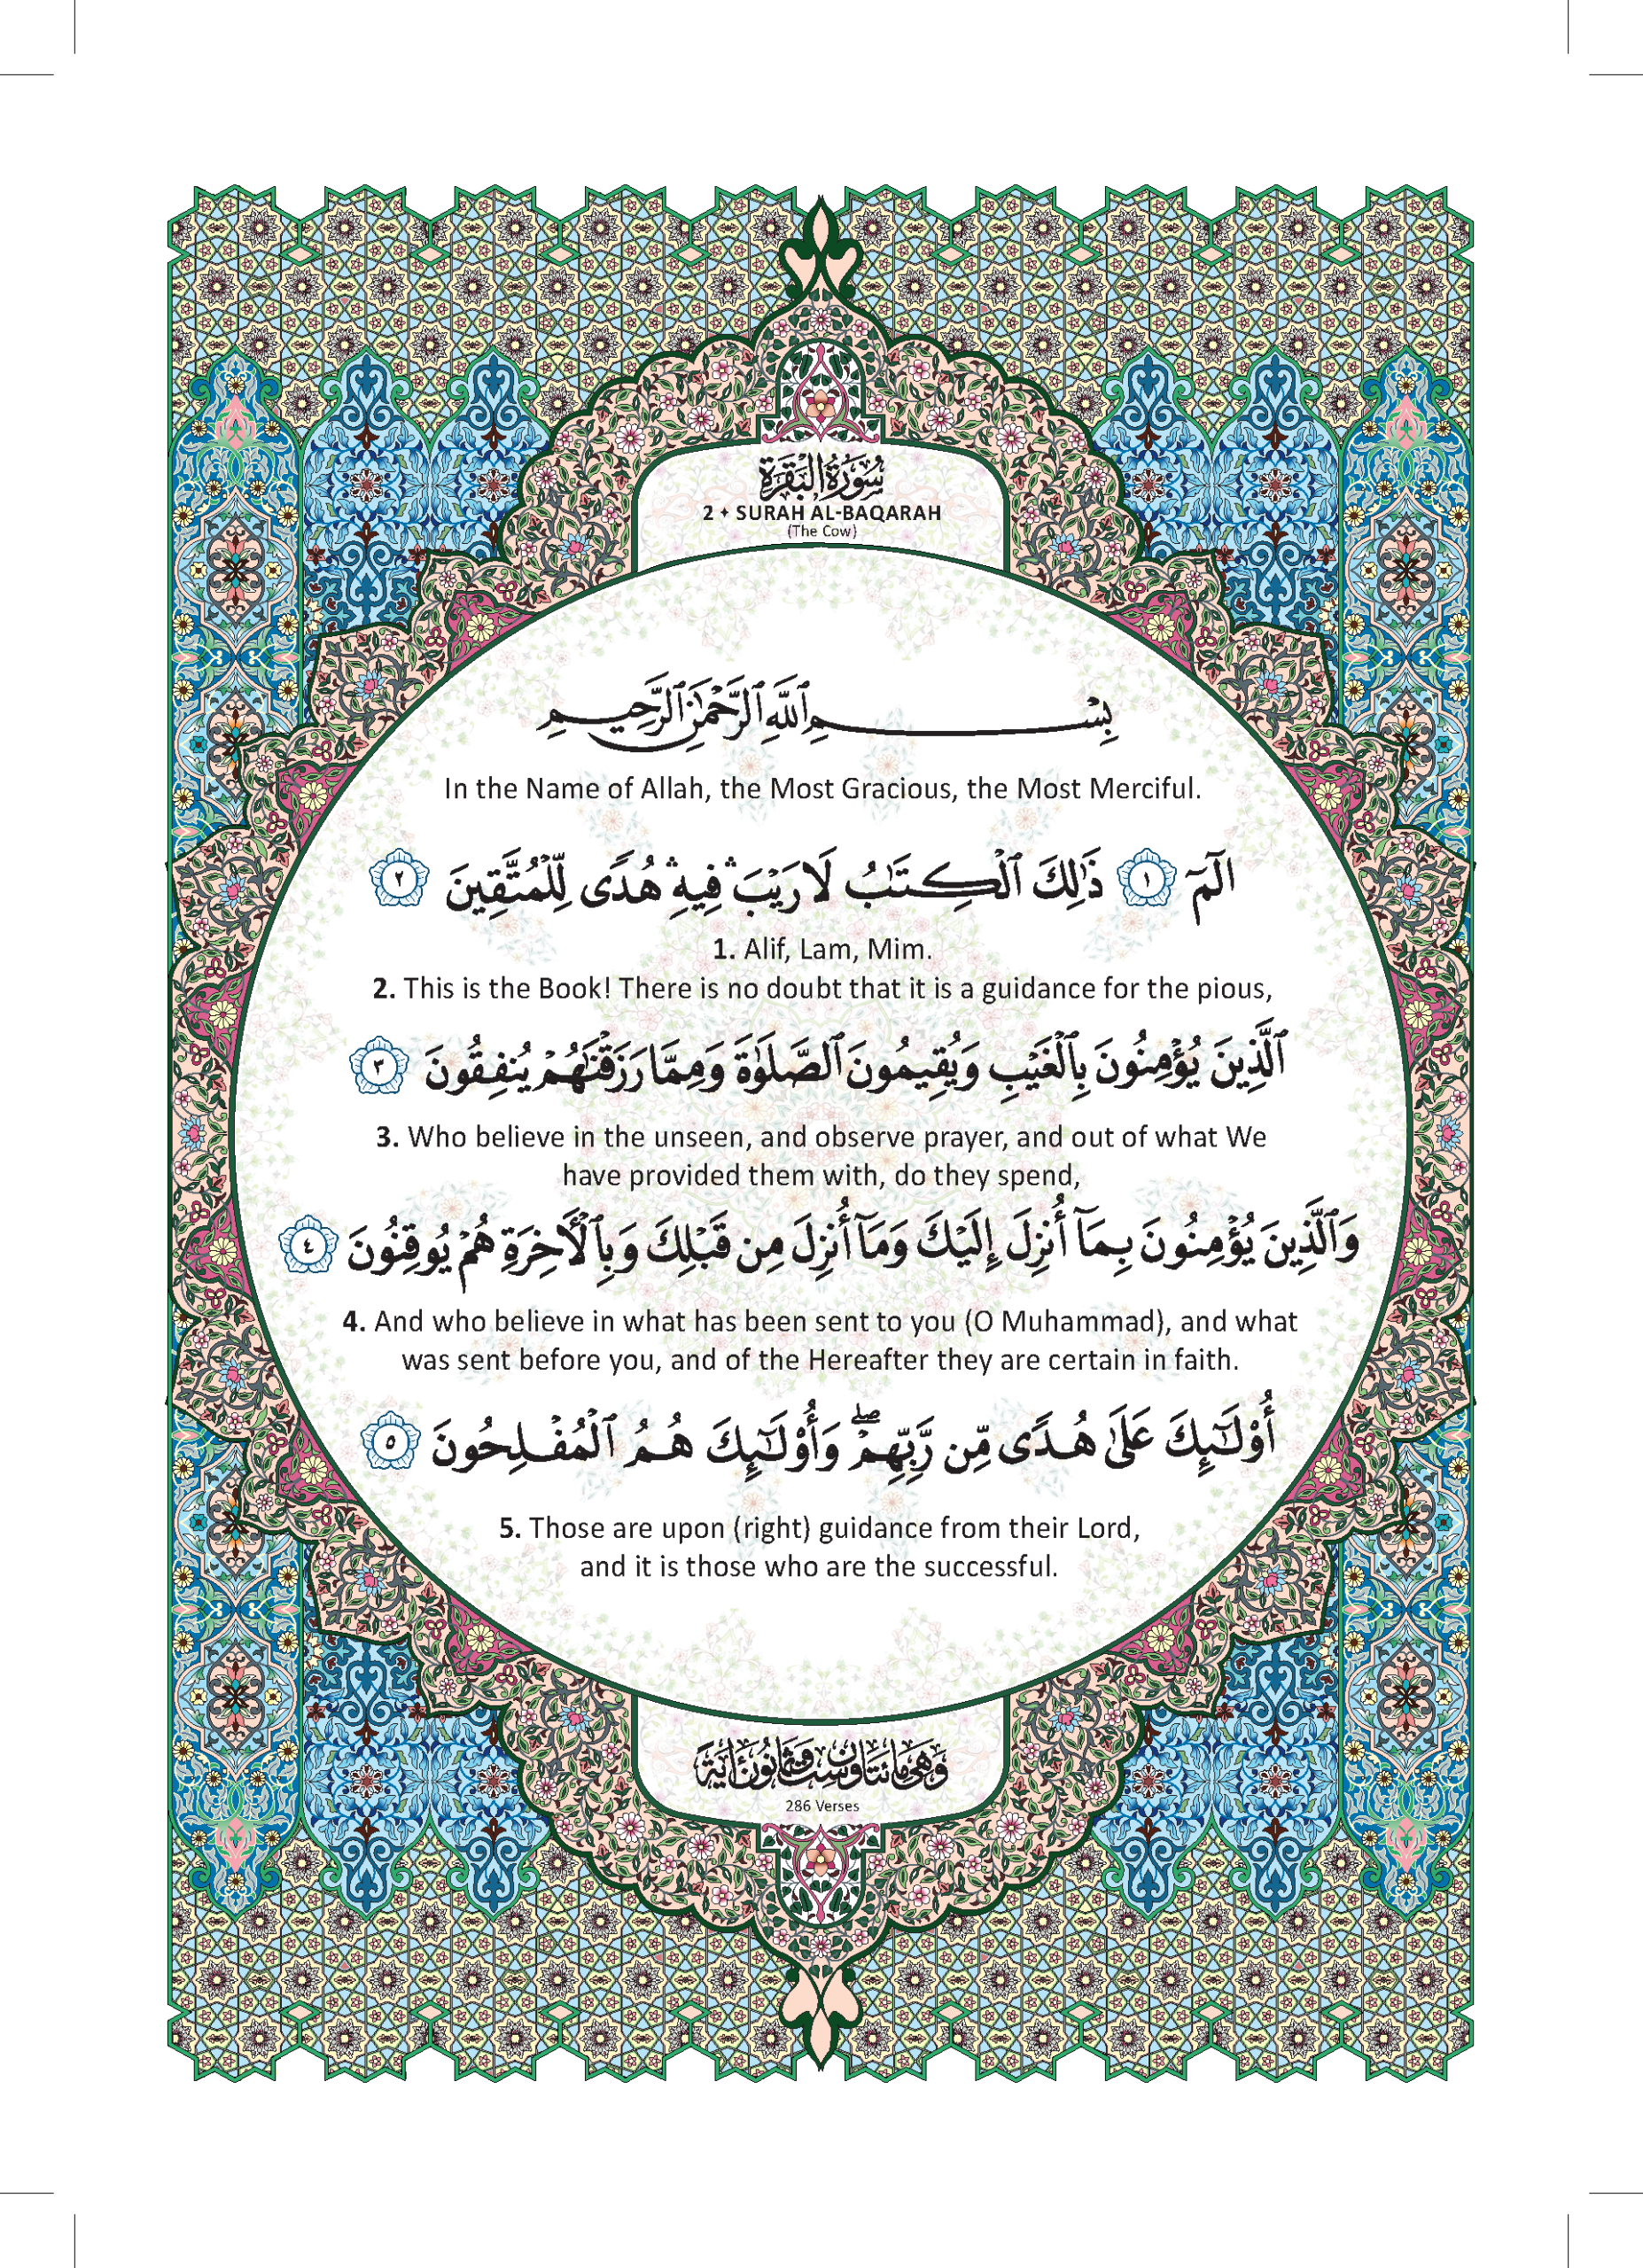 سُورَةُ الْبَقَرَةِ
2 ✦ SURAH AL-BAQARAH
(The Cow)
بِسْمِ ٱللَّهِ ٱلرَّحْمَٰنِ ٱلرَّحِيمِ
In the Name of Allah, the Most Gracious, the Most Merciful.
الٓمٓ ١ ذَٰلِكَ ٱلْكِتَٰبُ لَا رَيْبَ ۛ فِيهِ ۛ هُدًى لِّلْمُتَّقِينَ ٢
1. Alif, Lam, Mim.
2. This is the Book! There is no doubt that it is a guidance for the pious,
ٱلَّذِينَ يُؤْمِنُونَ بِٱلْغَيْبِ وَيُقِيمُونَ ٱلصَّلَوٰةَ وَمِمَّا رَزَقْنَٰهُمْ يُنفِقُونَ ٣
3. Who believe in the unseen, and observe prayer, and out of what We
have provided them with, do they spend,
وَٱلَّذِينَ يُؤْمِنُونَ بِمَآ أُنزِلَ إِلَيْكَ وَمَآ أُنزِلَ مِن قَبْلِكَ وَبِٱلْءَاخِرَةِ هُمْ يُوقِنُونَ ٤
4. And who believe in what has been sent to you (O Muhammad), and what
was sent before you, and of the Hereafter they are certain in faith.
أُو۟لَٰٓئِكَ عَلَىٰ هُدًى مِّن رَّبِّهِمْ ۖ وَأُو۟لَٰٓئِكَ هُمُ ٱلْمُفْلِحُونَ ٥
5. Those are upon (right) guidance from their Lord,
and it is those who are the successful.
وَهِيَ مِائَتَانِ وَسِتٌّ وَثَمَانُونَ آيَةً
286 Verses